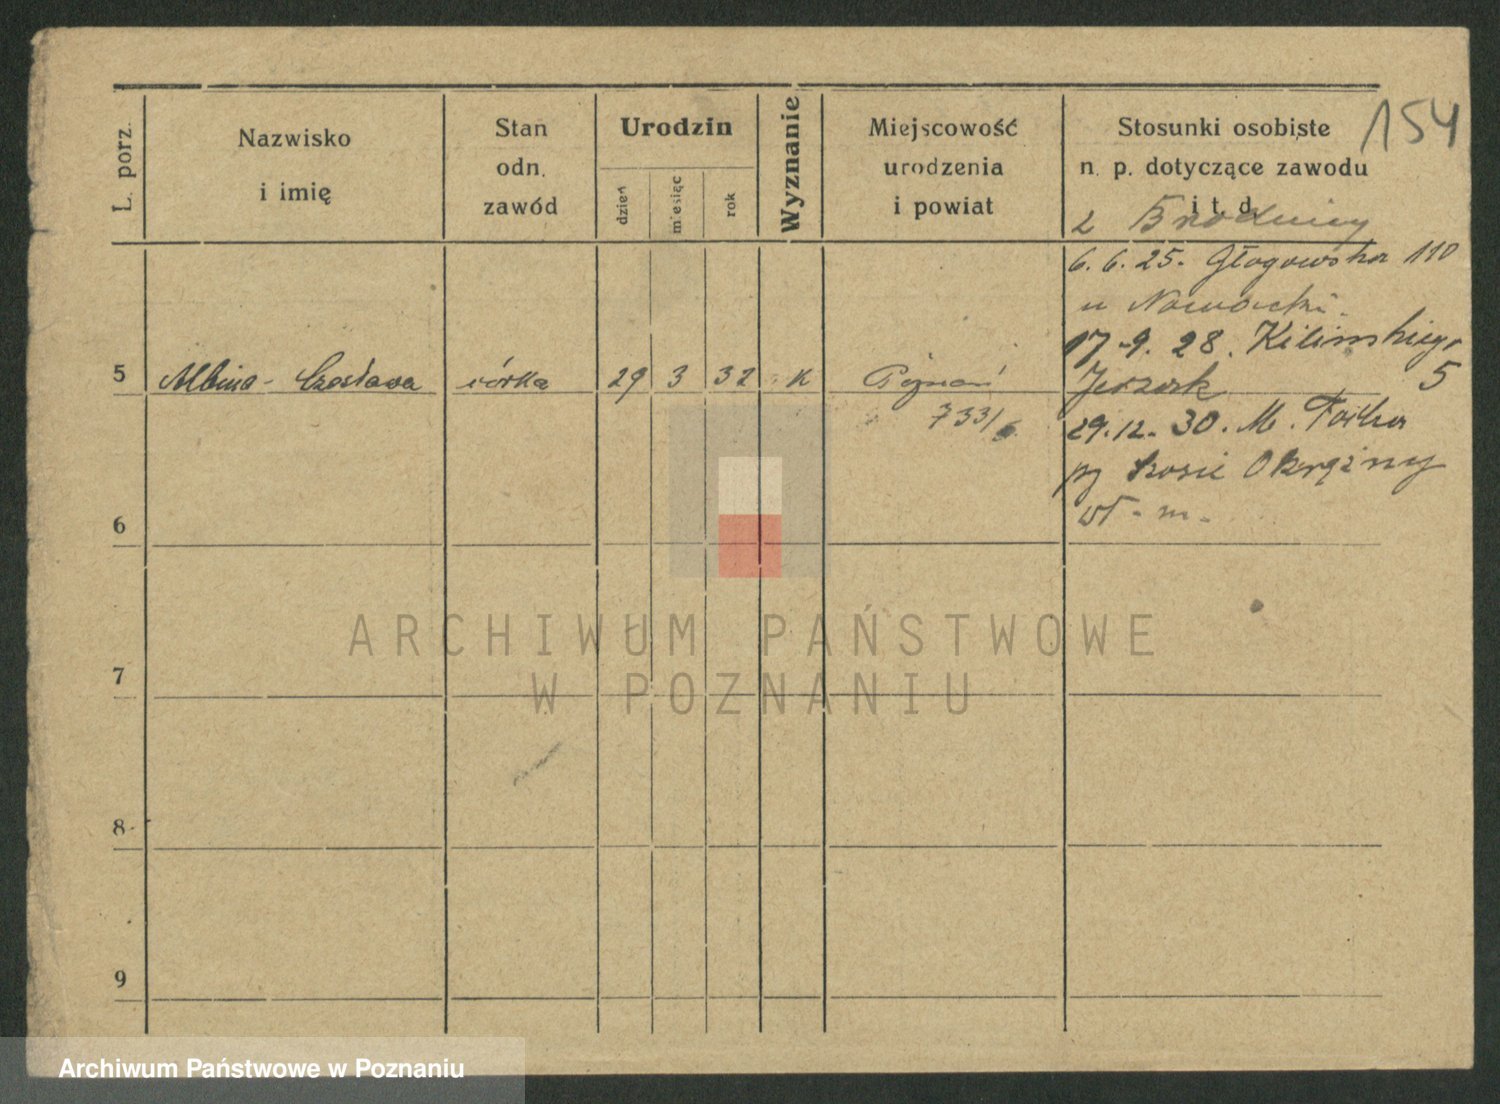 154
L. porz.
Nazwisko
i imię
Stan
odn.
zawód
Urodzin
dzień
miesiąc
rok
Wyznanie
Miejscowość
urodzenia
i powiat
Stosunki osobiste
n. p. dotyczące zawodu
i t. d.
z Brodnicy
6. 6. 25. Głogowska 110
u Nowacki.
17-9. 28. Kilińskiego
5 Albina- Czesława córka 29 3 32 K Poznań 5
733/
29. 12. 30. M.
Okrężny
wł- m-
6
7
8
9
ARCHIWUM PAŃSTWOWE
W POZNANIU
Archiwum Państwowe w Poznaniu